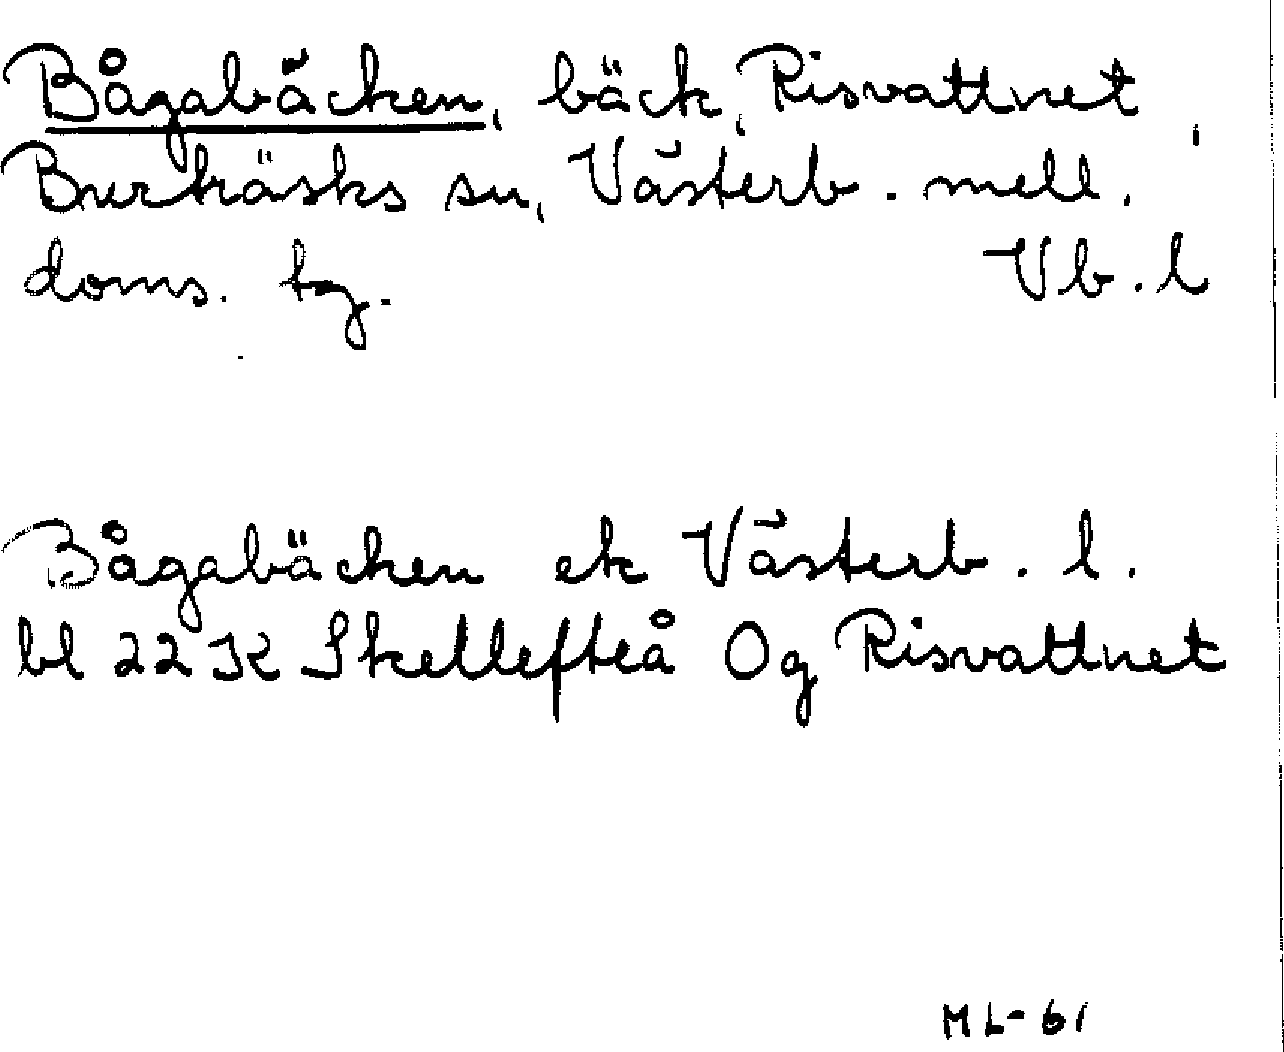 Bågabäcken, bäck, Risvattnet,
Burträsks sn, Västerb. mell.
doms. tg. Vb. l
Bågabäcken ek Västerb. l.
bl 22 K Skellefteå Og Risvattnet
ML-61